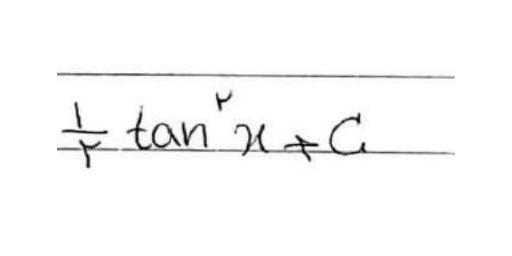 ۱/۲ tan^۲ x + C